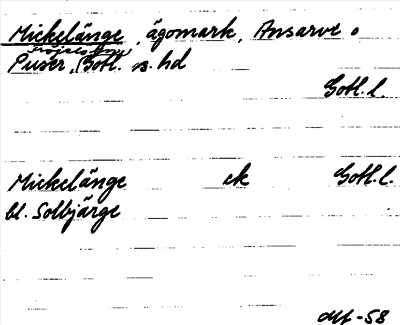 Mickelänge, ägomark, Ansarve o
Fröjels sn,
Puser, Gotl. s. hd
Gotl. l.
Mickelänge ek Gotl. l.
bl. Solbjärge
-58